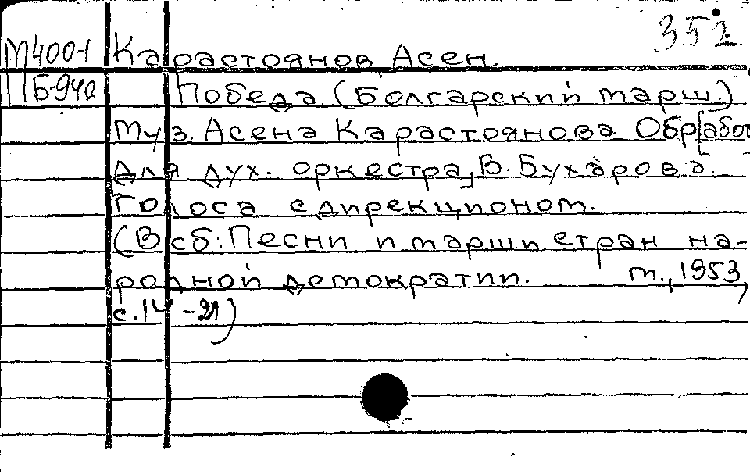 352
М400-1 Карастоянов, Асен.
П Б-940 Победа (Болгарский марш.)
Муз. Асена Карастоянова Обр[абот
для дух. оркестра, В. Бухарова.
Голоса с дирекционом.
(В сб: Песни и марши стран на-
родной демократии. М., 1953,
с. 14 -21)